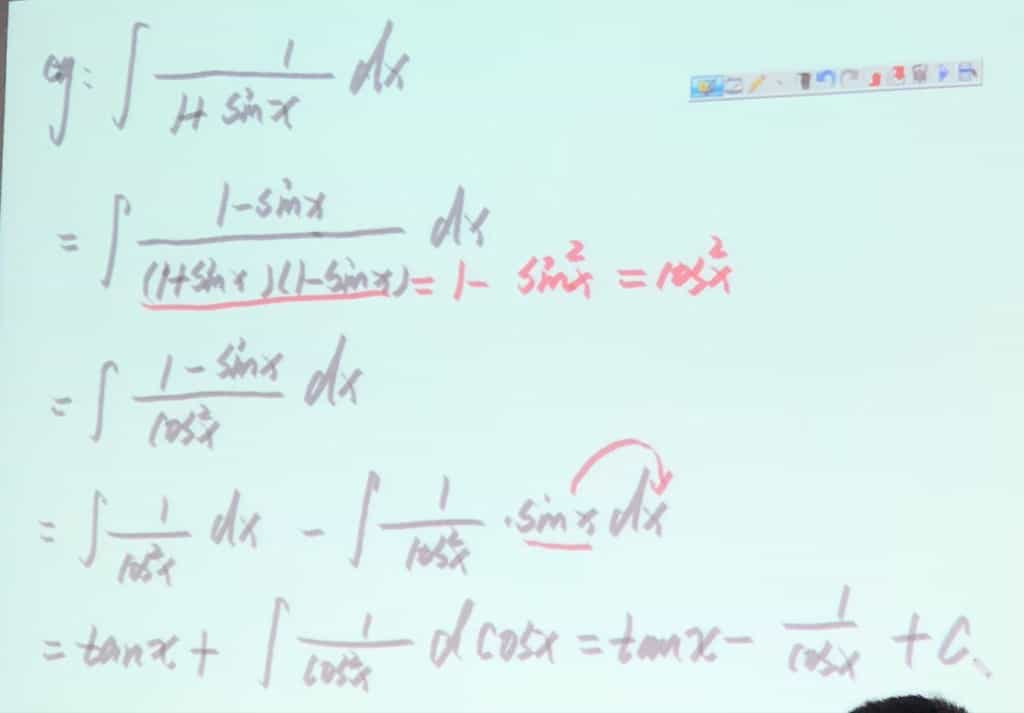 eg: ∫ 1/(1+sinx) dx
= ∫ (1-sinx)/((1+sinx)(1-sinx)) dx = 1 - sin²x = cos²x
= ∫ (1-sinx)/cos²x dx
= ∫ 1/cos²x dx - ∫ 1/cos²x · sinx dx
= tanx + ∫ 1/cos²x dcosx = tanx - 1/cosx + C.